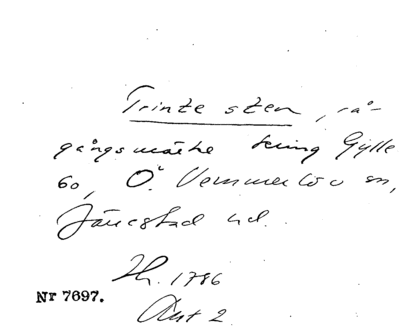 Trinte sten, rå-
gångsmärke kring Gylle
60, Ö. Vemmerlöv sn,
Järrestad hd.
Th. 1786
Nr 7697.
Akt 2